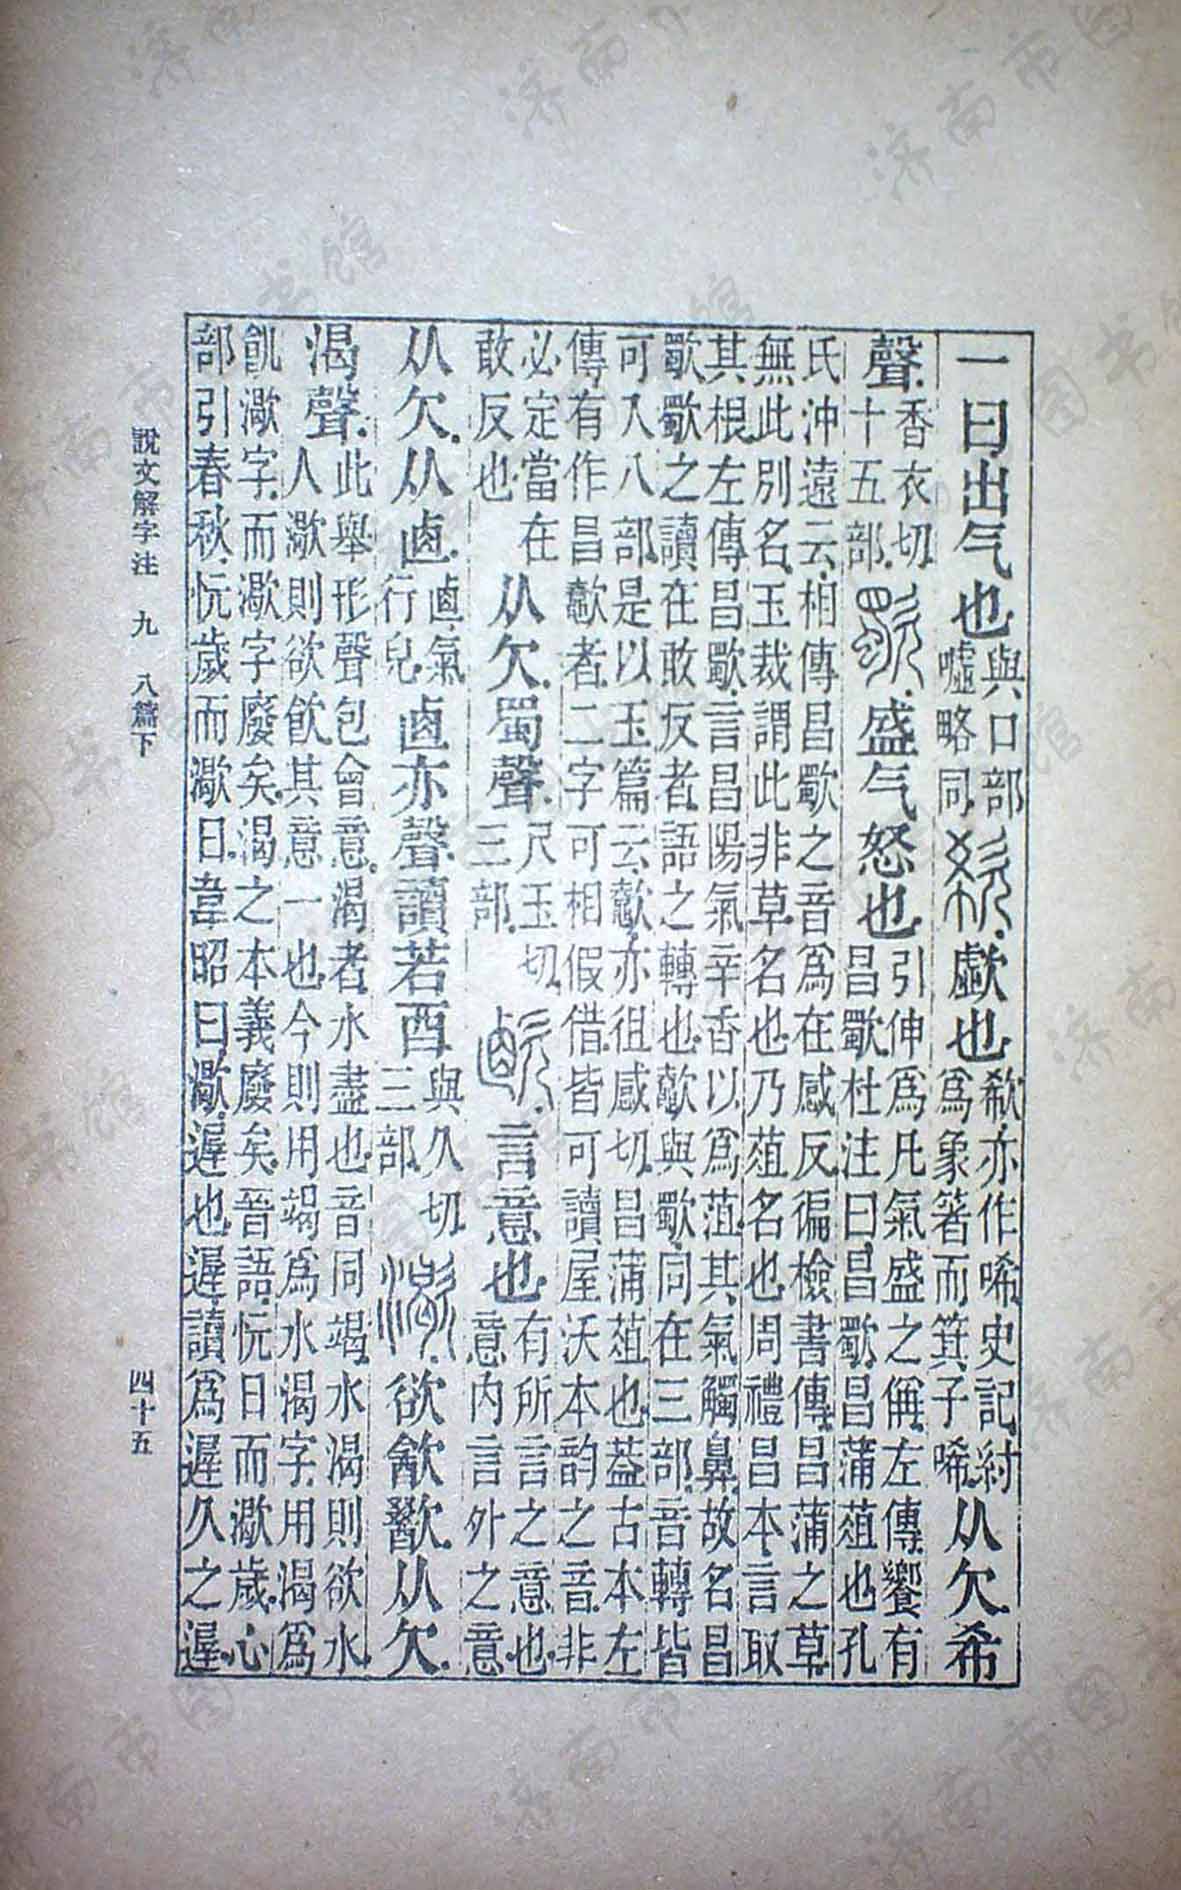 一曰出气也
與口部
嘘略同
歔也
欷亦作唏史記紂
爲象箸而箕子唏
从欠希
聲
香衣切
十五部
盛气怒也
引伸爲凡氣盛之偁左傳饗有
昌歜杜注曰昌歜昌蒲葅也孔
氏沖遠云相傳昌歜之音爲在感反徧檢書傳昌蒲之草
無此別名玉裁謂此非草名也乃葅名也周禮昌本言取
其根左傳昌歜言昌陽氣辛香以爲菹其氣觸鼻故名昌
歜歜之讀在敢反者語之轉也與歜同在三部音轉皆
可入八部是以玉篇云亦徂感切昌蒲葅也葢古本左
傳有作昌者二字可相假借皆可讀屋沃本韵之音非
必定當在
敢反也
从欠蜀聲
尺玉切
三部
言意也
有所言之意也
意内言外之意
从欠从卥
卥氣
行皃
卥亦聲讀若酉
與久切
三部
欲㱃歠从欠
渴聲
此舉形聲包會意渴者水盡也音同竭水渴則欲水
人㵣則欲㱃其意一也今則用竭爲水渴字用渴爲
飢㵣字而㵣字廢矣渴之本義廢矣晉語忨日而㵣歲心
部引春秋忨歲而㵣日韋昭曰㵣遲也遲讀爲遲久之遲
說文解字注 九 八篇下
四十五
济南市图书馆